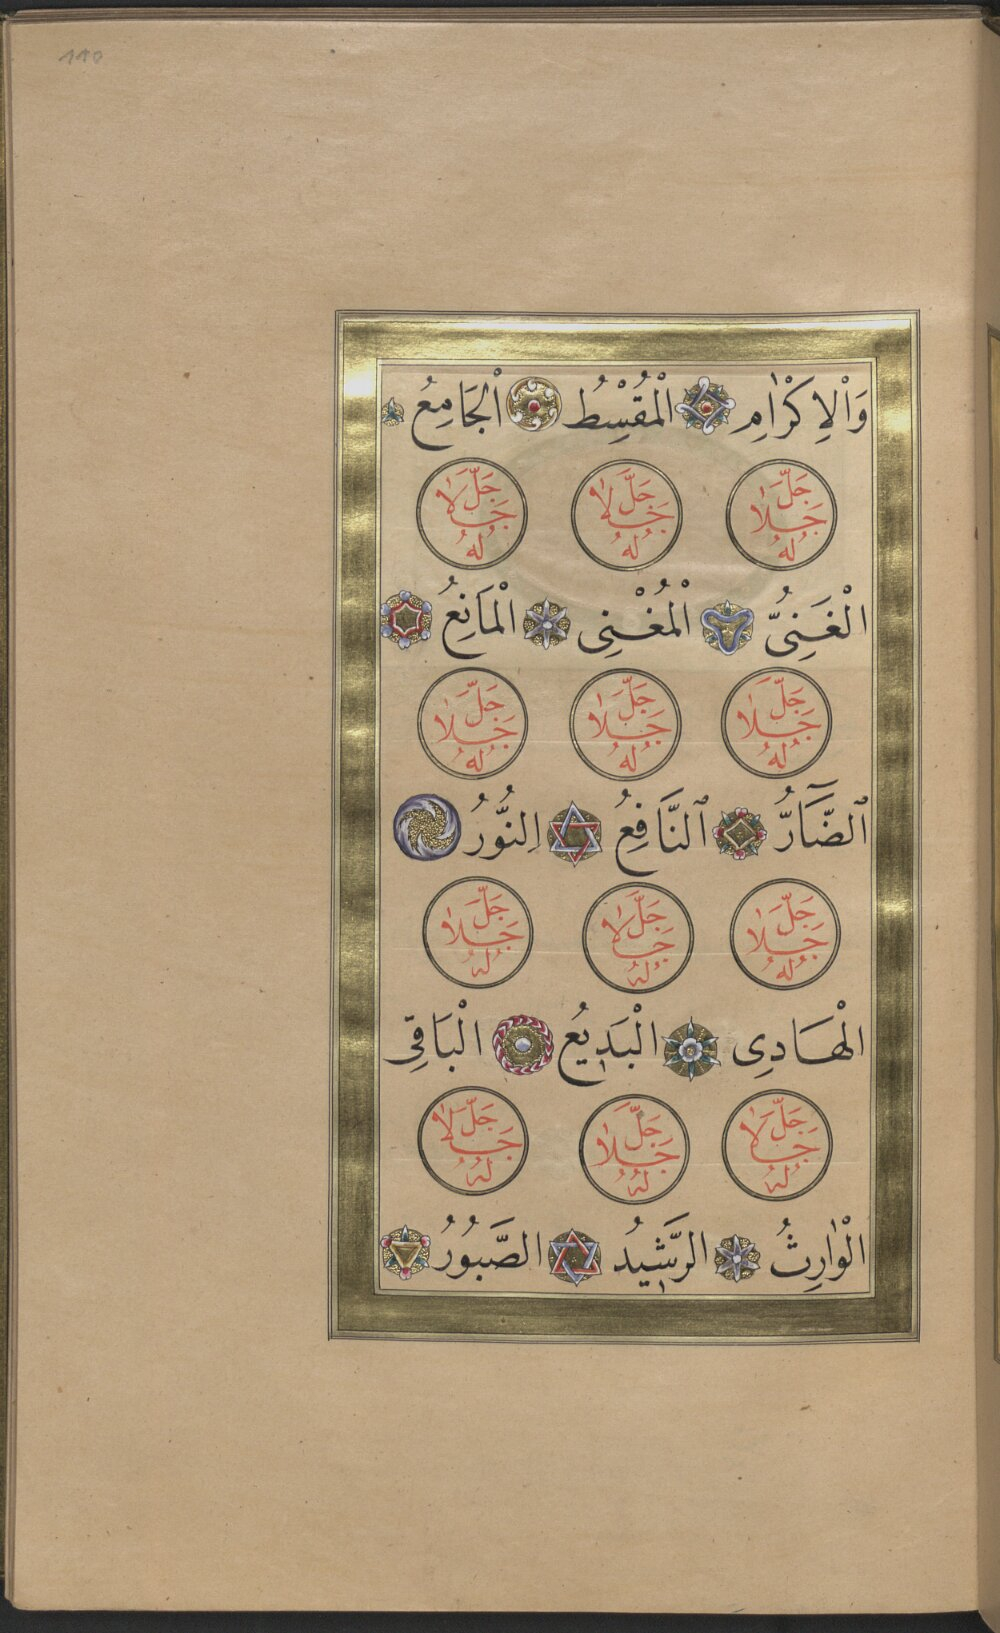 110
وَالْاِكْرَامِ الْمُقْسِطُ الْجَامِعُ
جَلَّ جَلَالُهُ جَلَّ جَلَالُهُ جَلَّ جَلَالُهُ
الْغَنِىُّ الْمُغْنِى الْمَانِعُ
جَلَّ جَلَالُهُ جَلَّ جَلَالُهُ جَلَّ جَلَالُهُ
اَلضَّآرُّ اَلنَّافِعُ اَلنُّورُ
جَلَّ جَلَالُهُ جَلَّ جَلَالُهُ جَلَّ جَلَالُهُ
الْهَادِى الْبَدِيعُ الْبَاقِى
جَلَّ جَلَالُهُ جَلَّ جَلَالُهُ جَلَّ جَلَالُهُ
الْوَارِثُ الرَّشِيدُ الصَّبُورُ